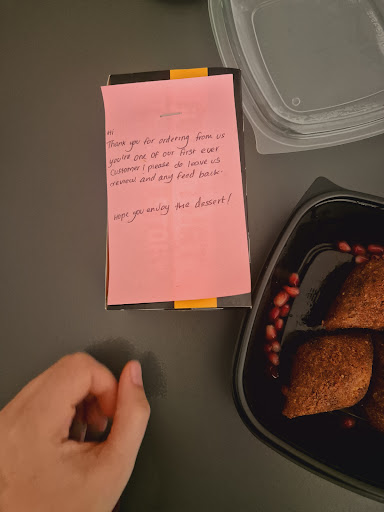 Hi
Thank you for ordering from us
you're one of our first ever
customer! please do leave us
review and any feed back.
hope you enjoy the dessert!